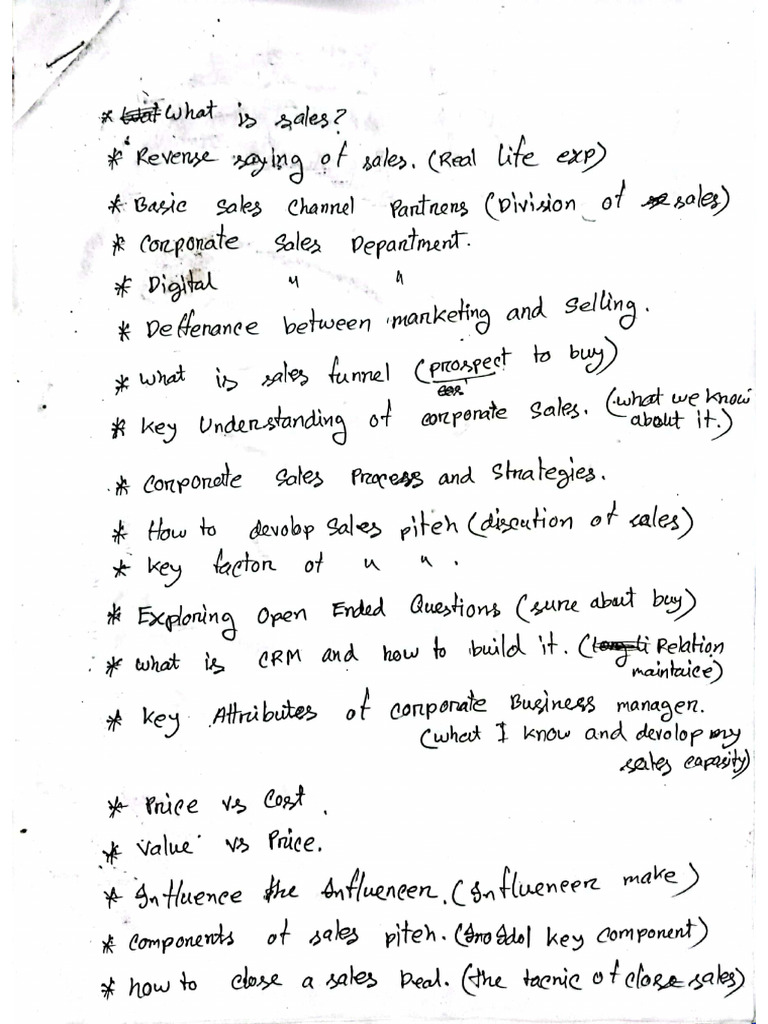 * What is sales?
* Revense saying of sales. (Real life exp)
* Basic Sales Channel Partners (Division of sales)
* Corporate Sales Department.
* Digital " "
* Defferance between marketing and Selling.
* What is sales funnel (prospect to buy)
* Key Understanding of corporate Sales. (what we know
about it.)
* Corporate Sales Process and Strategies.
* How to devolop Sales pitch (discution of sales)
* Key factor of " ".
* Exploring Open Ended Questions (sure about buy)
* What is CRM and how to build it. (Relation
maintaice)
* Key Attributes of corporate Business manager.
(what I know and devolop my
sales capasity)
* Price vs Cost.
* Value vs Price.
* Influence the Influencer. (Influencer make)
* Components of sales pitch. (key component)
* how to close a sales Deal. (the tacnic of close sales)